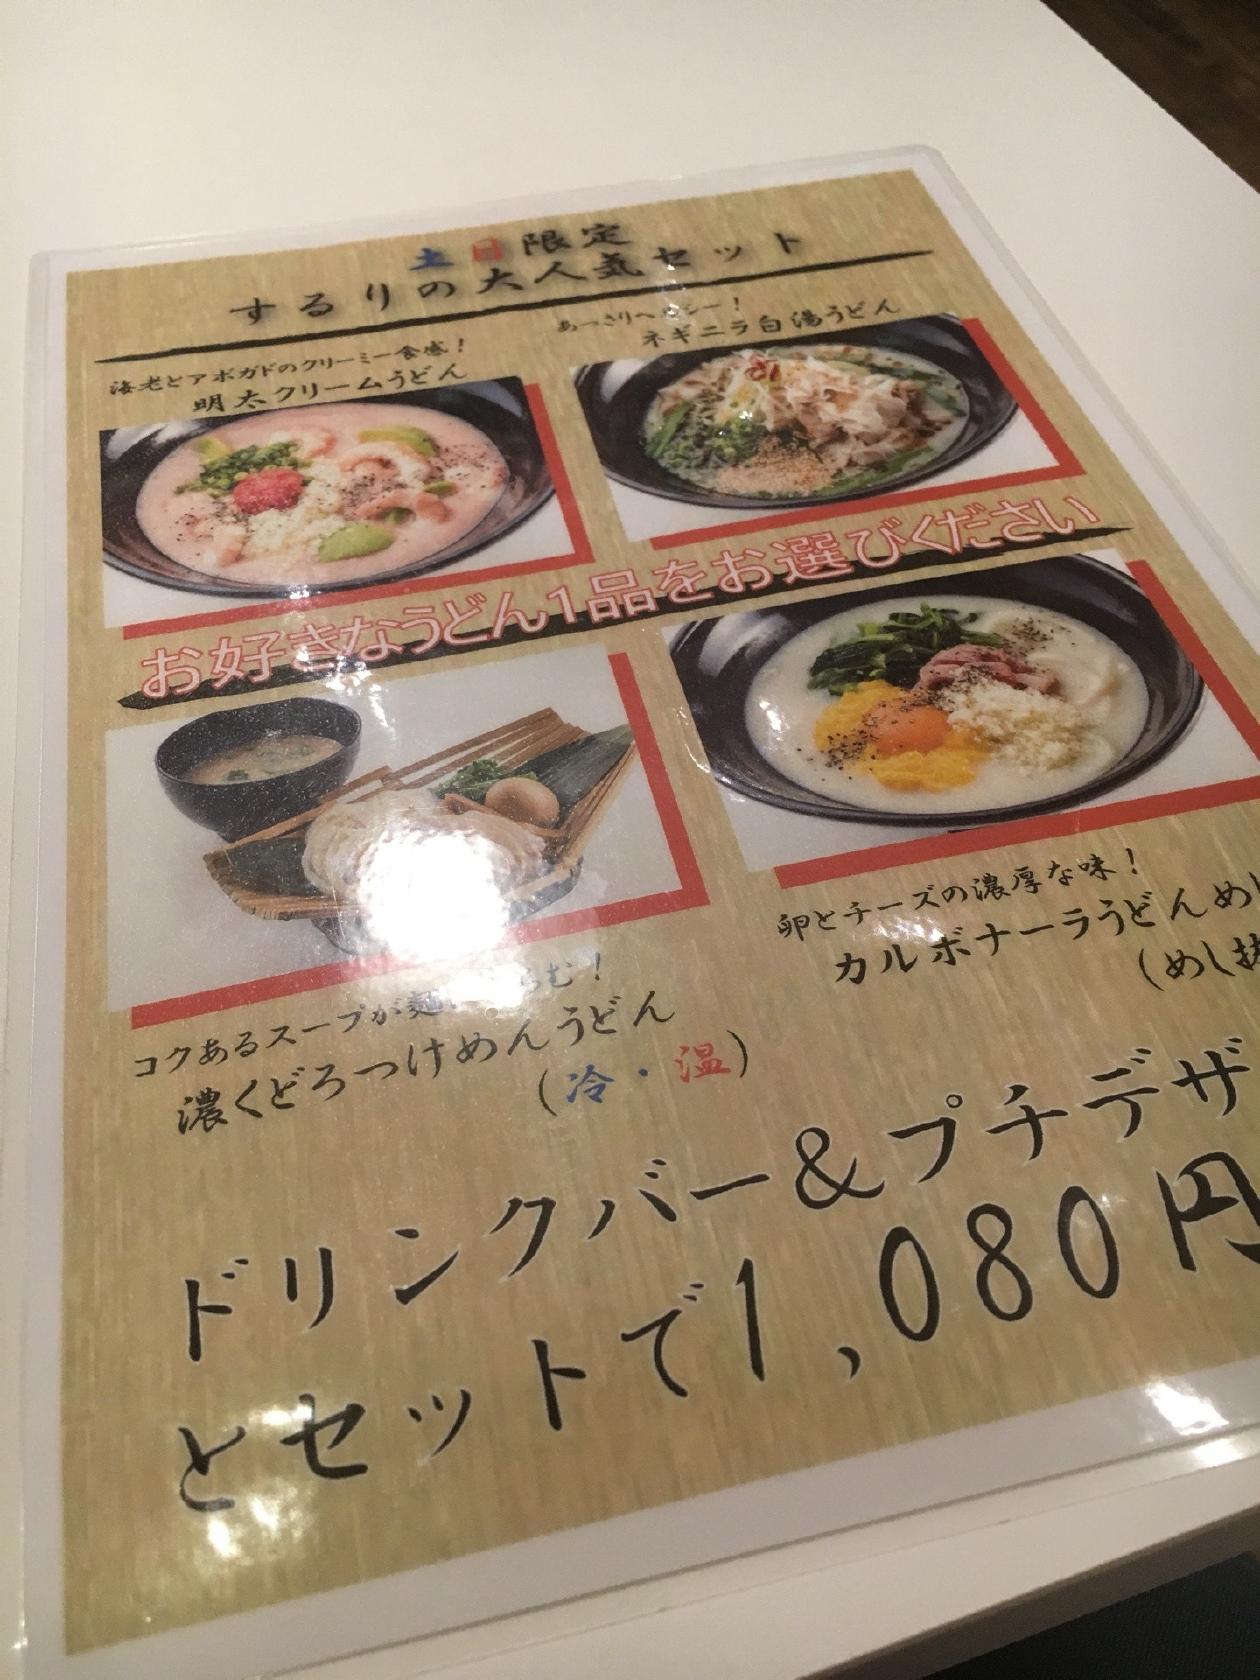 土日限定
するりの大人気セット
海老とアボガドのクリーミー食感！
明太クリームうどん
あっさりヘルシー！
ネギニラ白湯うどん
お好きなうどん1品をお選びください
コクあるスープが麺にからむ！
濃くどろつけめんうどん
（冷・温）
卵とチーズの濃厚な味！
カルボナーラうどんめ
（めし抜
ドリンクバー＆プチデザ
とセットで1,080円